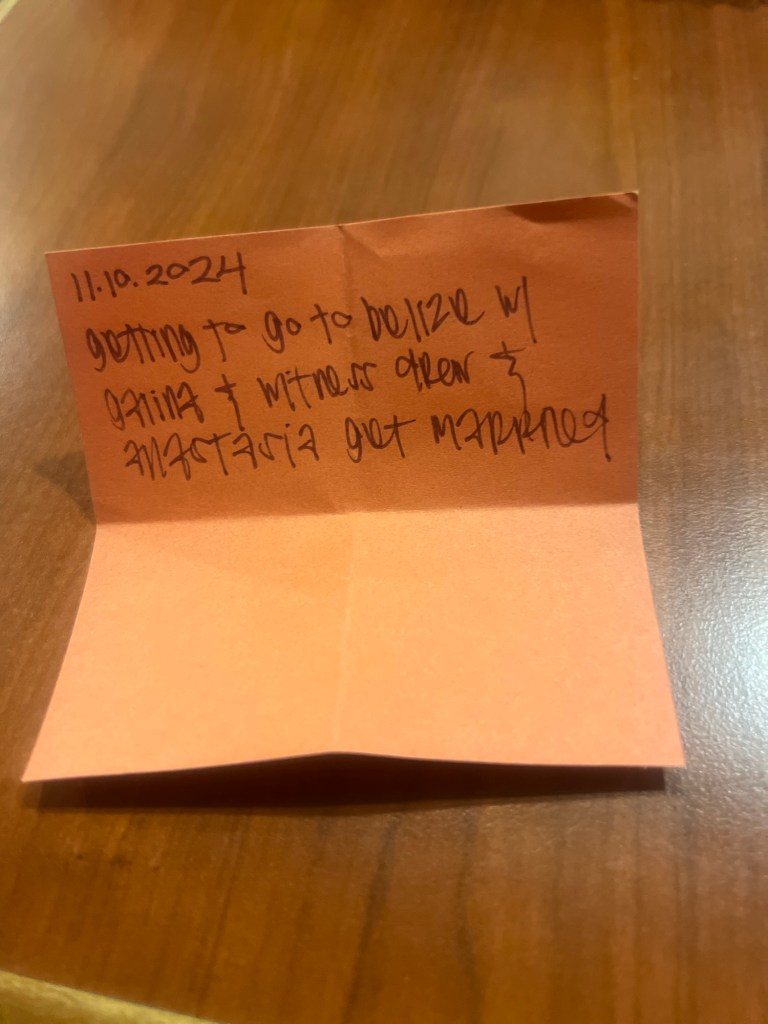 11.10.2024
getting to go to belize w/
galina & witness drew &
anastasia get married